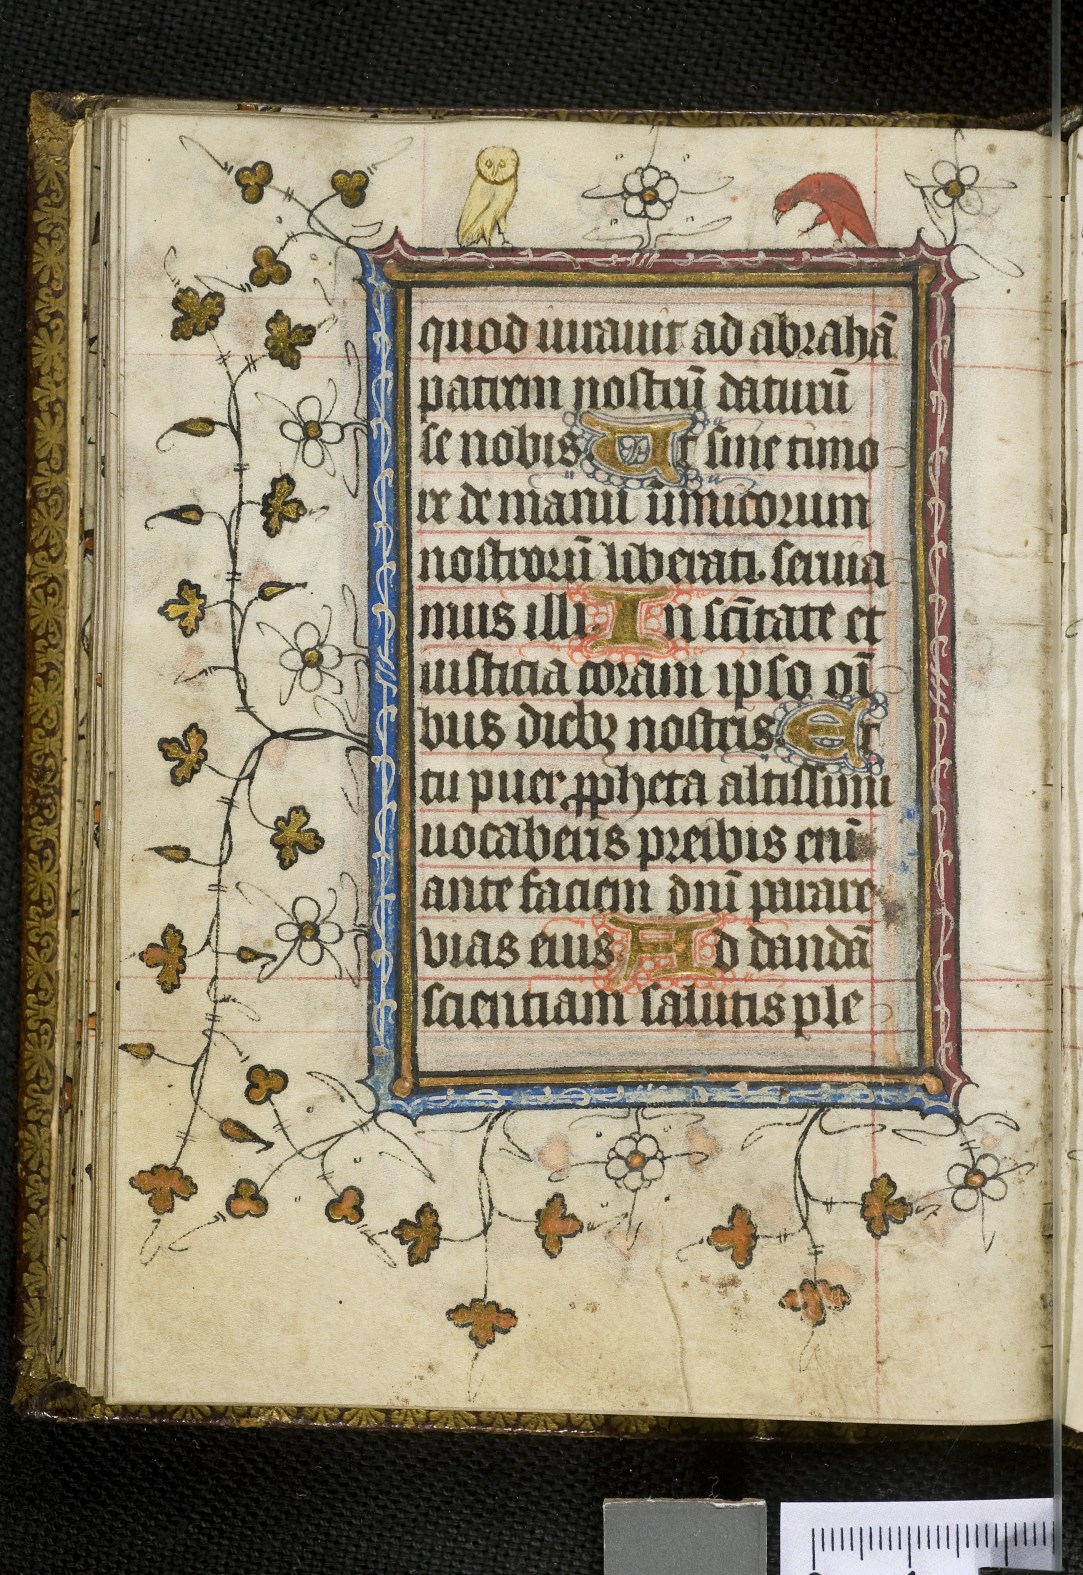 quod iurauit ad abrahā
patrem nostrū daturū
se nobis Ut sine timo
re de manu inimicorum
nostrorū liberati seruia
mus illi. In sc̄itate et
iusticia coram ipso oī
bus diebꝫ nostris Et
tu puer ꝓpheta altissimi
uocaberis preibis enī
ante faciem dn̄i parare
vias eius Ad dandā
scientiam salutis ple